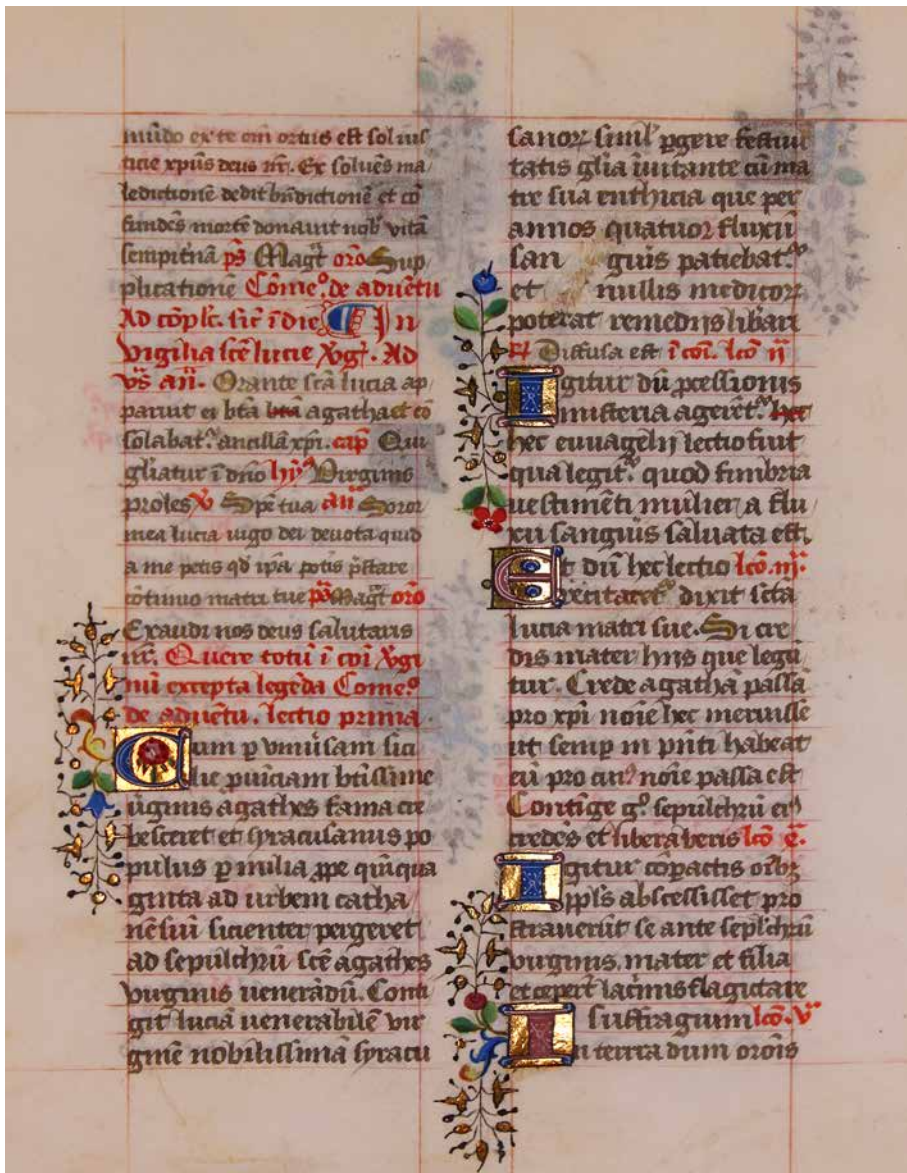 mūdo ex te om̄ ortus est sol ius
ticie xp̄us deus nr̄. Ex soluēs ma
ledictionē dedit bn̄dictionē et cō
fundēs mortē donauit nob̄ vitā
sempit̄nā ps̄ Magt̄ oro Sup
plicationē Cōme.o de aduētu
Ad cōplc̄. sic̄ ī die In
vigilia scē lucie v̄gt. Ad
vs̄ an̄. Orante scā lucia ap
paruit ei btā btā agatha et cō
solabat.r ancillā xp̄i. cap̄ Qui
gl̄iatur ī dn̄o hȳ Virginis
proles v̄ Spē tua an̄ Soror
mea lucia uigo dei deuota quid
a me petis qd̄ ip̄a potis p̄stare
cōtinuo matri tue ps̄ Magt̄ oro
Exaudi nos deus salutaris
nr̄. Quere totū ī cōi v̄gi
nū excepta legēda Come.o
de aduētu. lectio prima.
Cum p vniūsam sici
lie puīciam btīssime
ūginis agathes fama cre
besceret et syracusanus po
pulus p milia ppe quīqua
ginta ad urbem catha
nēsiū sicienter pergeret
ad sepulchrū scē agathes
uirginis uenerādū. Conti
git luciā uenerabilē vir
ginē nobilissimā syracu
sanoꝝ simil' pgere festiui
tatis gl̄ia īuitante cū ma
tre sua euthicia que per
annos quatuor fluxū
san guīs patiebat.r
et nullis medicoꝝ
poterat remedijs lib̄ari
R Diffusa est ī cōi. lcō ij
Igitur dū pcessionis
misteria ageret.r hec
hec euuāgelij lectio fuit
qua legit.r quod fimbria
uestimēti mulier a flu
xu sanguīs saluata est.
Et dū hec lectio lcō. iij.
recitaret.r dixit scta
lucia matri sue. Si cre
dis mater hijs que legū
tur. Crede agathā passā
pro xp̄i noīe hec meruisse
ut semp in pn̄ti habeat
eū pro cui9 noīe passa est
Contige g.o sepulchrū ei9
credēs et liberaberis lcō
Igitur cōpactis oīb3
ppl̄s abscessisset pro
strauerūt se ante sepl̄chrū
uirginis. mater et filia
et cepert̄ lac̄mis flagitare
suffragium lcō. v
In terrea dum orōis